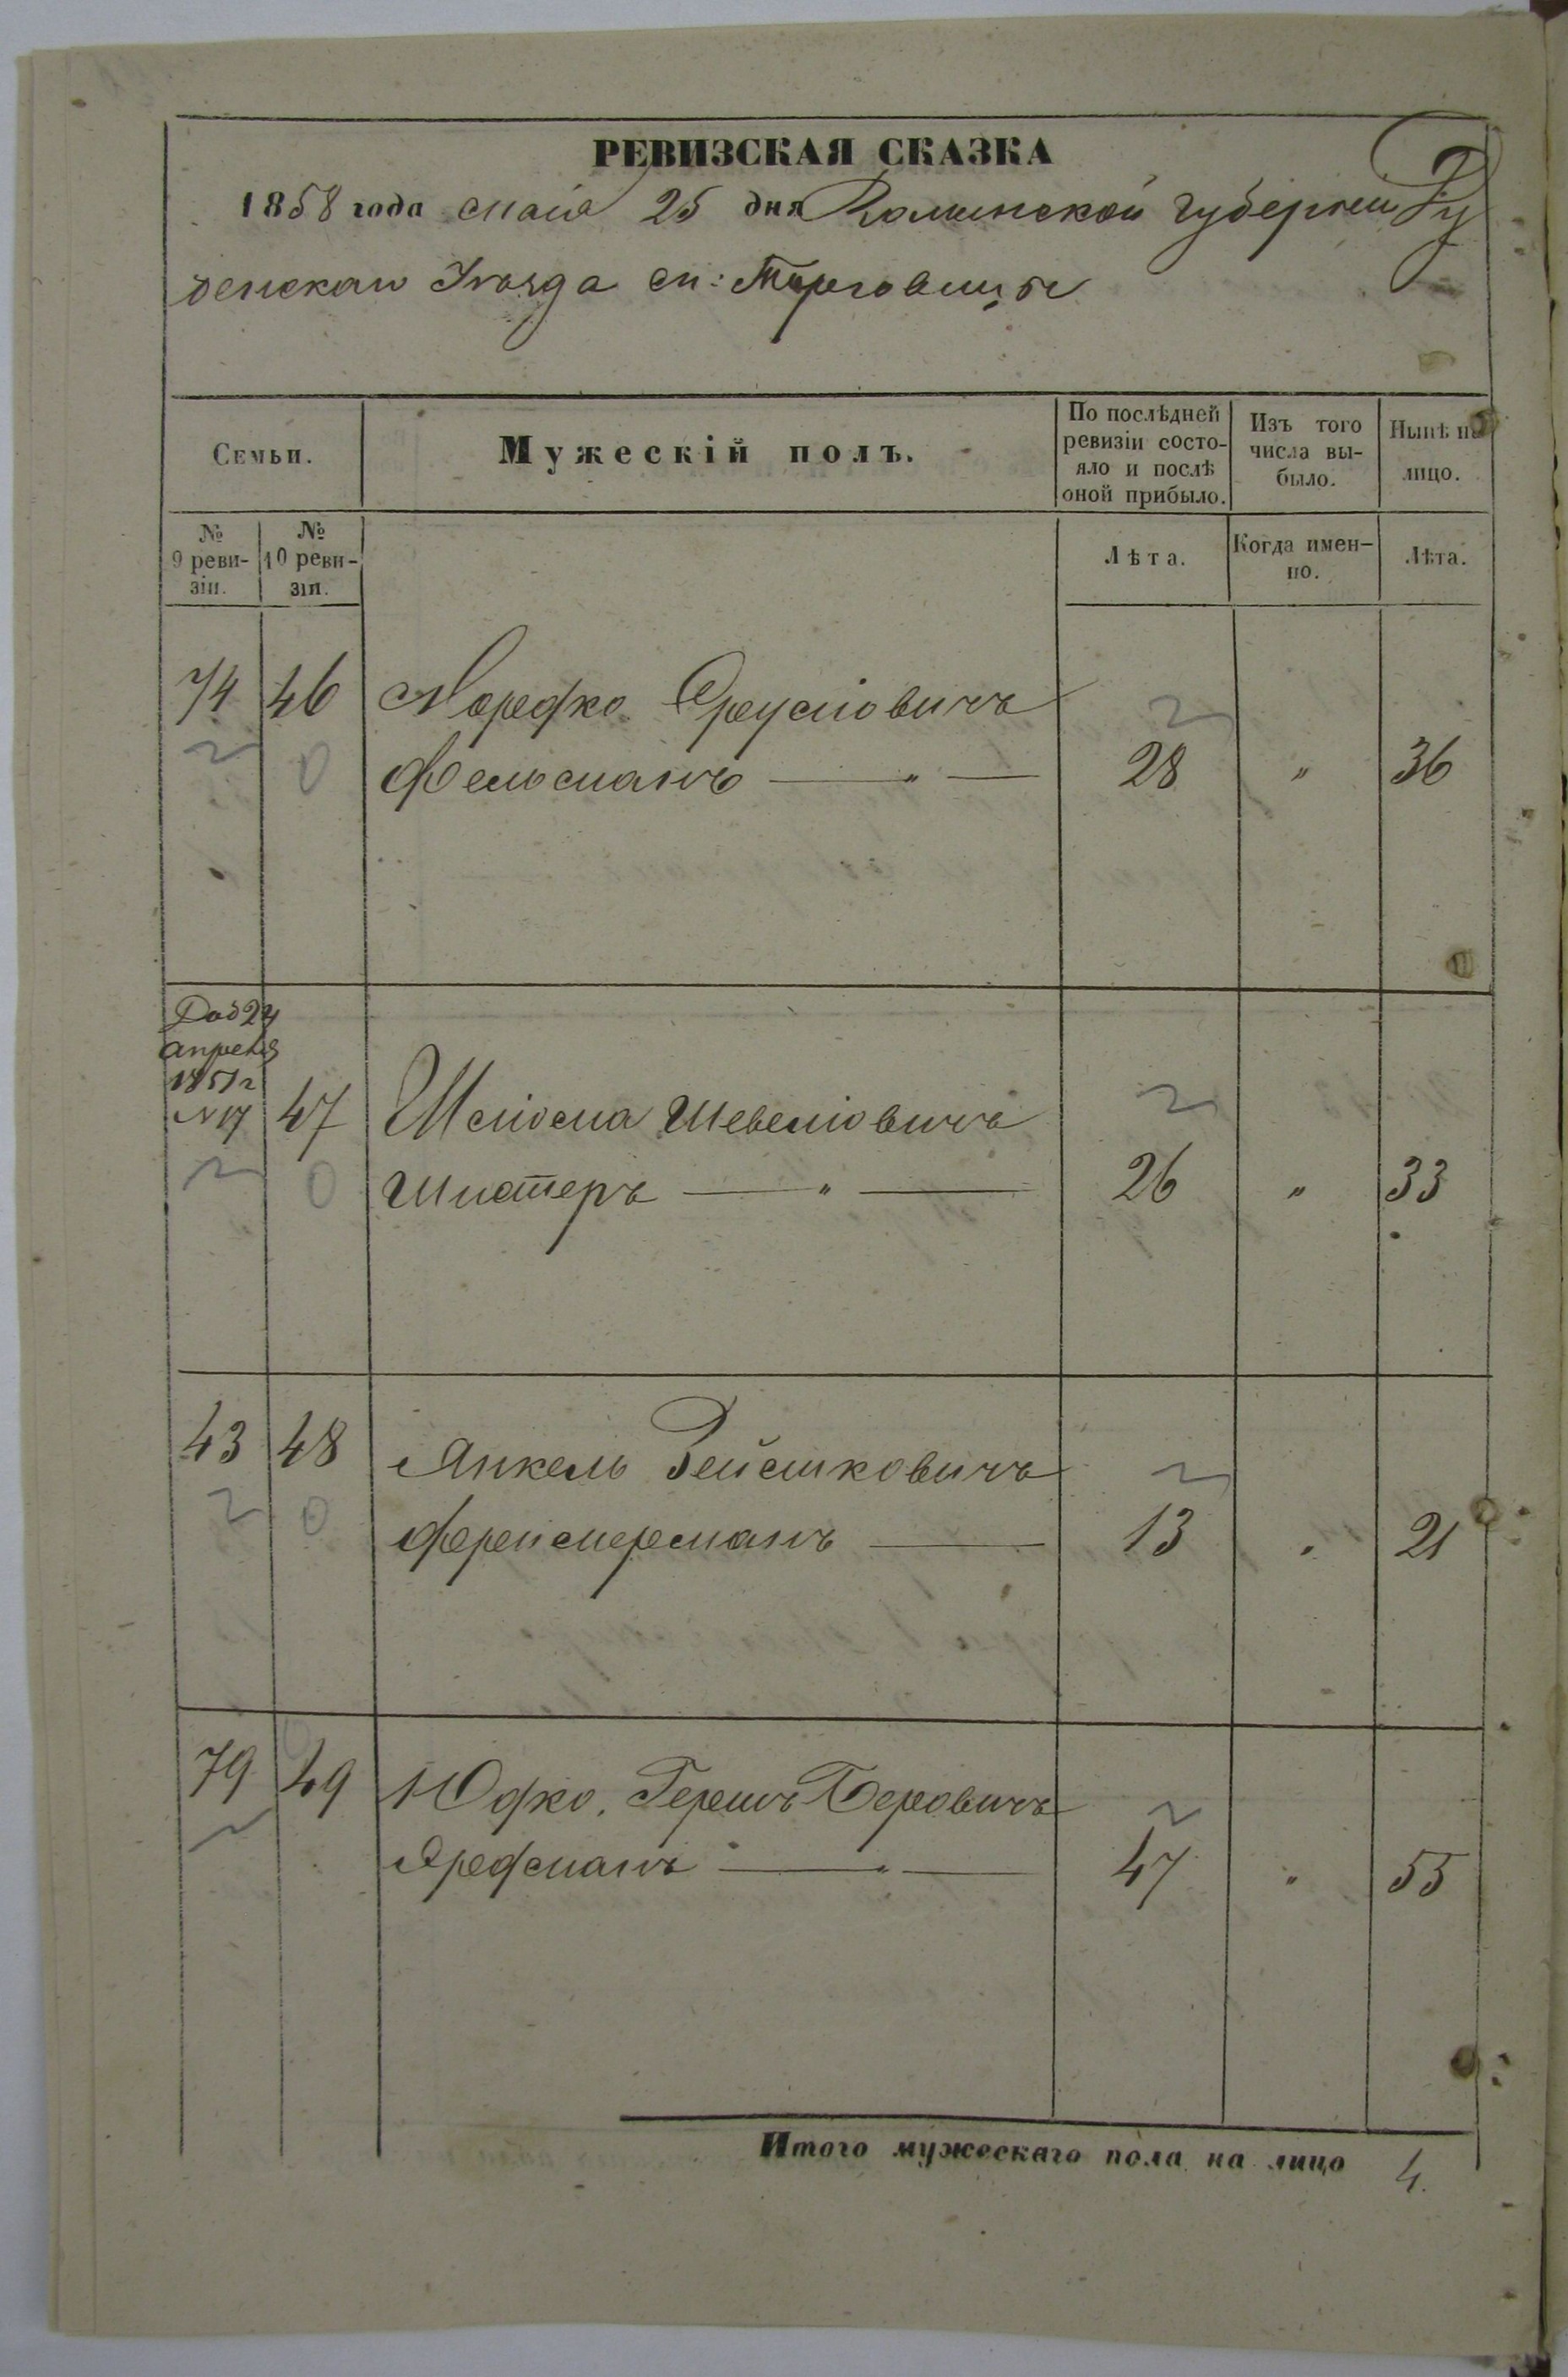 РЕВИЗСКАЯ СКАЗКА
1858 года маія 25 дня Волынской губерніи Ду
бенскаго Уѣзда м: Торговицы
Семьи.
Мужескій полъ.
По послѣдней ревизіи состо-
яло и послѣ
оной прибыло.
Изъ того
числа вы-
было.
Нынѣ на
лицо.
№
9 реви-
зіи.
№
10 реви-
зіи.
Лѣта.
Когда имен-
но.
Лѣта.
74 46 Мордко
Фельдманъ — " — 28 " 36
Доб 24
апреля
1851 г
N 17 47 Шліома
Шистеръ — " — 26 " 33
43 48 Янкель
13 " 21
79 49 Юдко Гершъ Беровичъ
Ярефманъ — " — 47 " 55
Итого мужескаго пола на лицо 4.